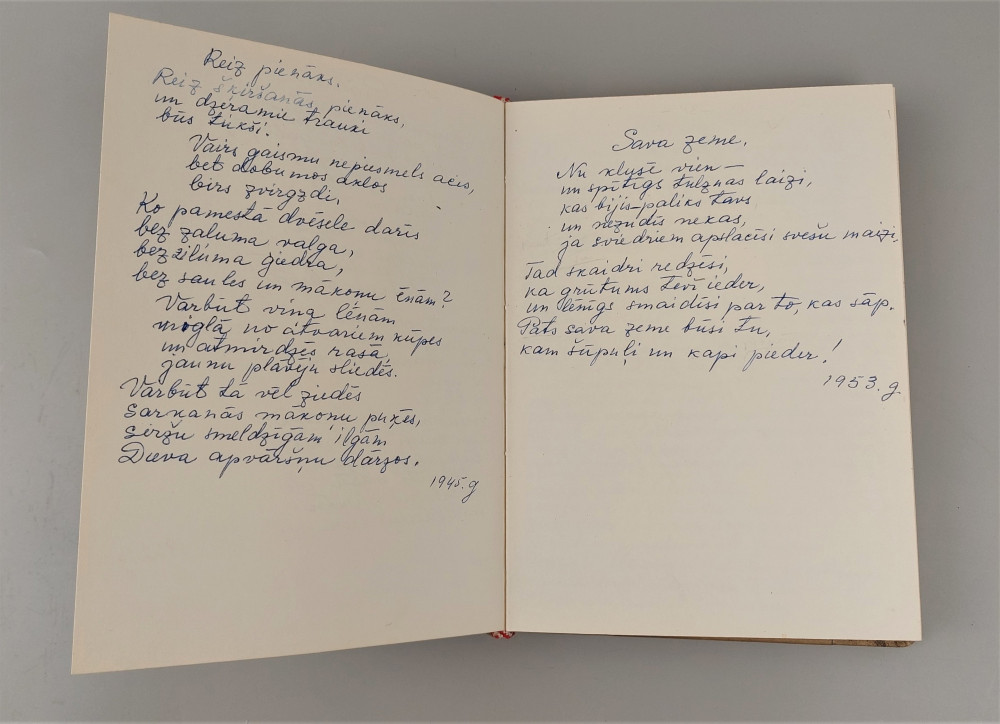 Reiz pienāks.
Reiz šķiršanās pienāks,
un dzeramie trauki
būs tukši.
Vairs gaismu nepiesmels acis,
bet dobumos aklos
birs zvirgzdi.
Ko pamestā dvēsele darīs
bez zaļuma valga,
bez ziluma ģiedra,
bez saules un mākoņu ēnām?
Varbūt viņa lēnām
miglā no atvariem kūpēs
un atmirdzēs rasā,
jaunu plāvēju sliedēs.
Varbūt tā vēl ziedēs
sarkanās mākoņu puķēs,
sēržu smeldzīgām ilgām
Dieva apvāršņu dārzos.
1945.g
Sava zeme.
Nu klusē vien —
un spītīgs tulznas laizi,
kas bijis – paliks tavs
un nezudīs nekas,
ja sviedriem apslacīsi svešu maizi,
Tad skaidri redzēsi,
ka grūtums tevī ieder,
un lēnīgs smaidīsi par to, kas sāp.
Pats sava zeme būsi tu,
kam šūpuļi un kapi pieder!
1953.g